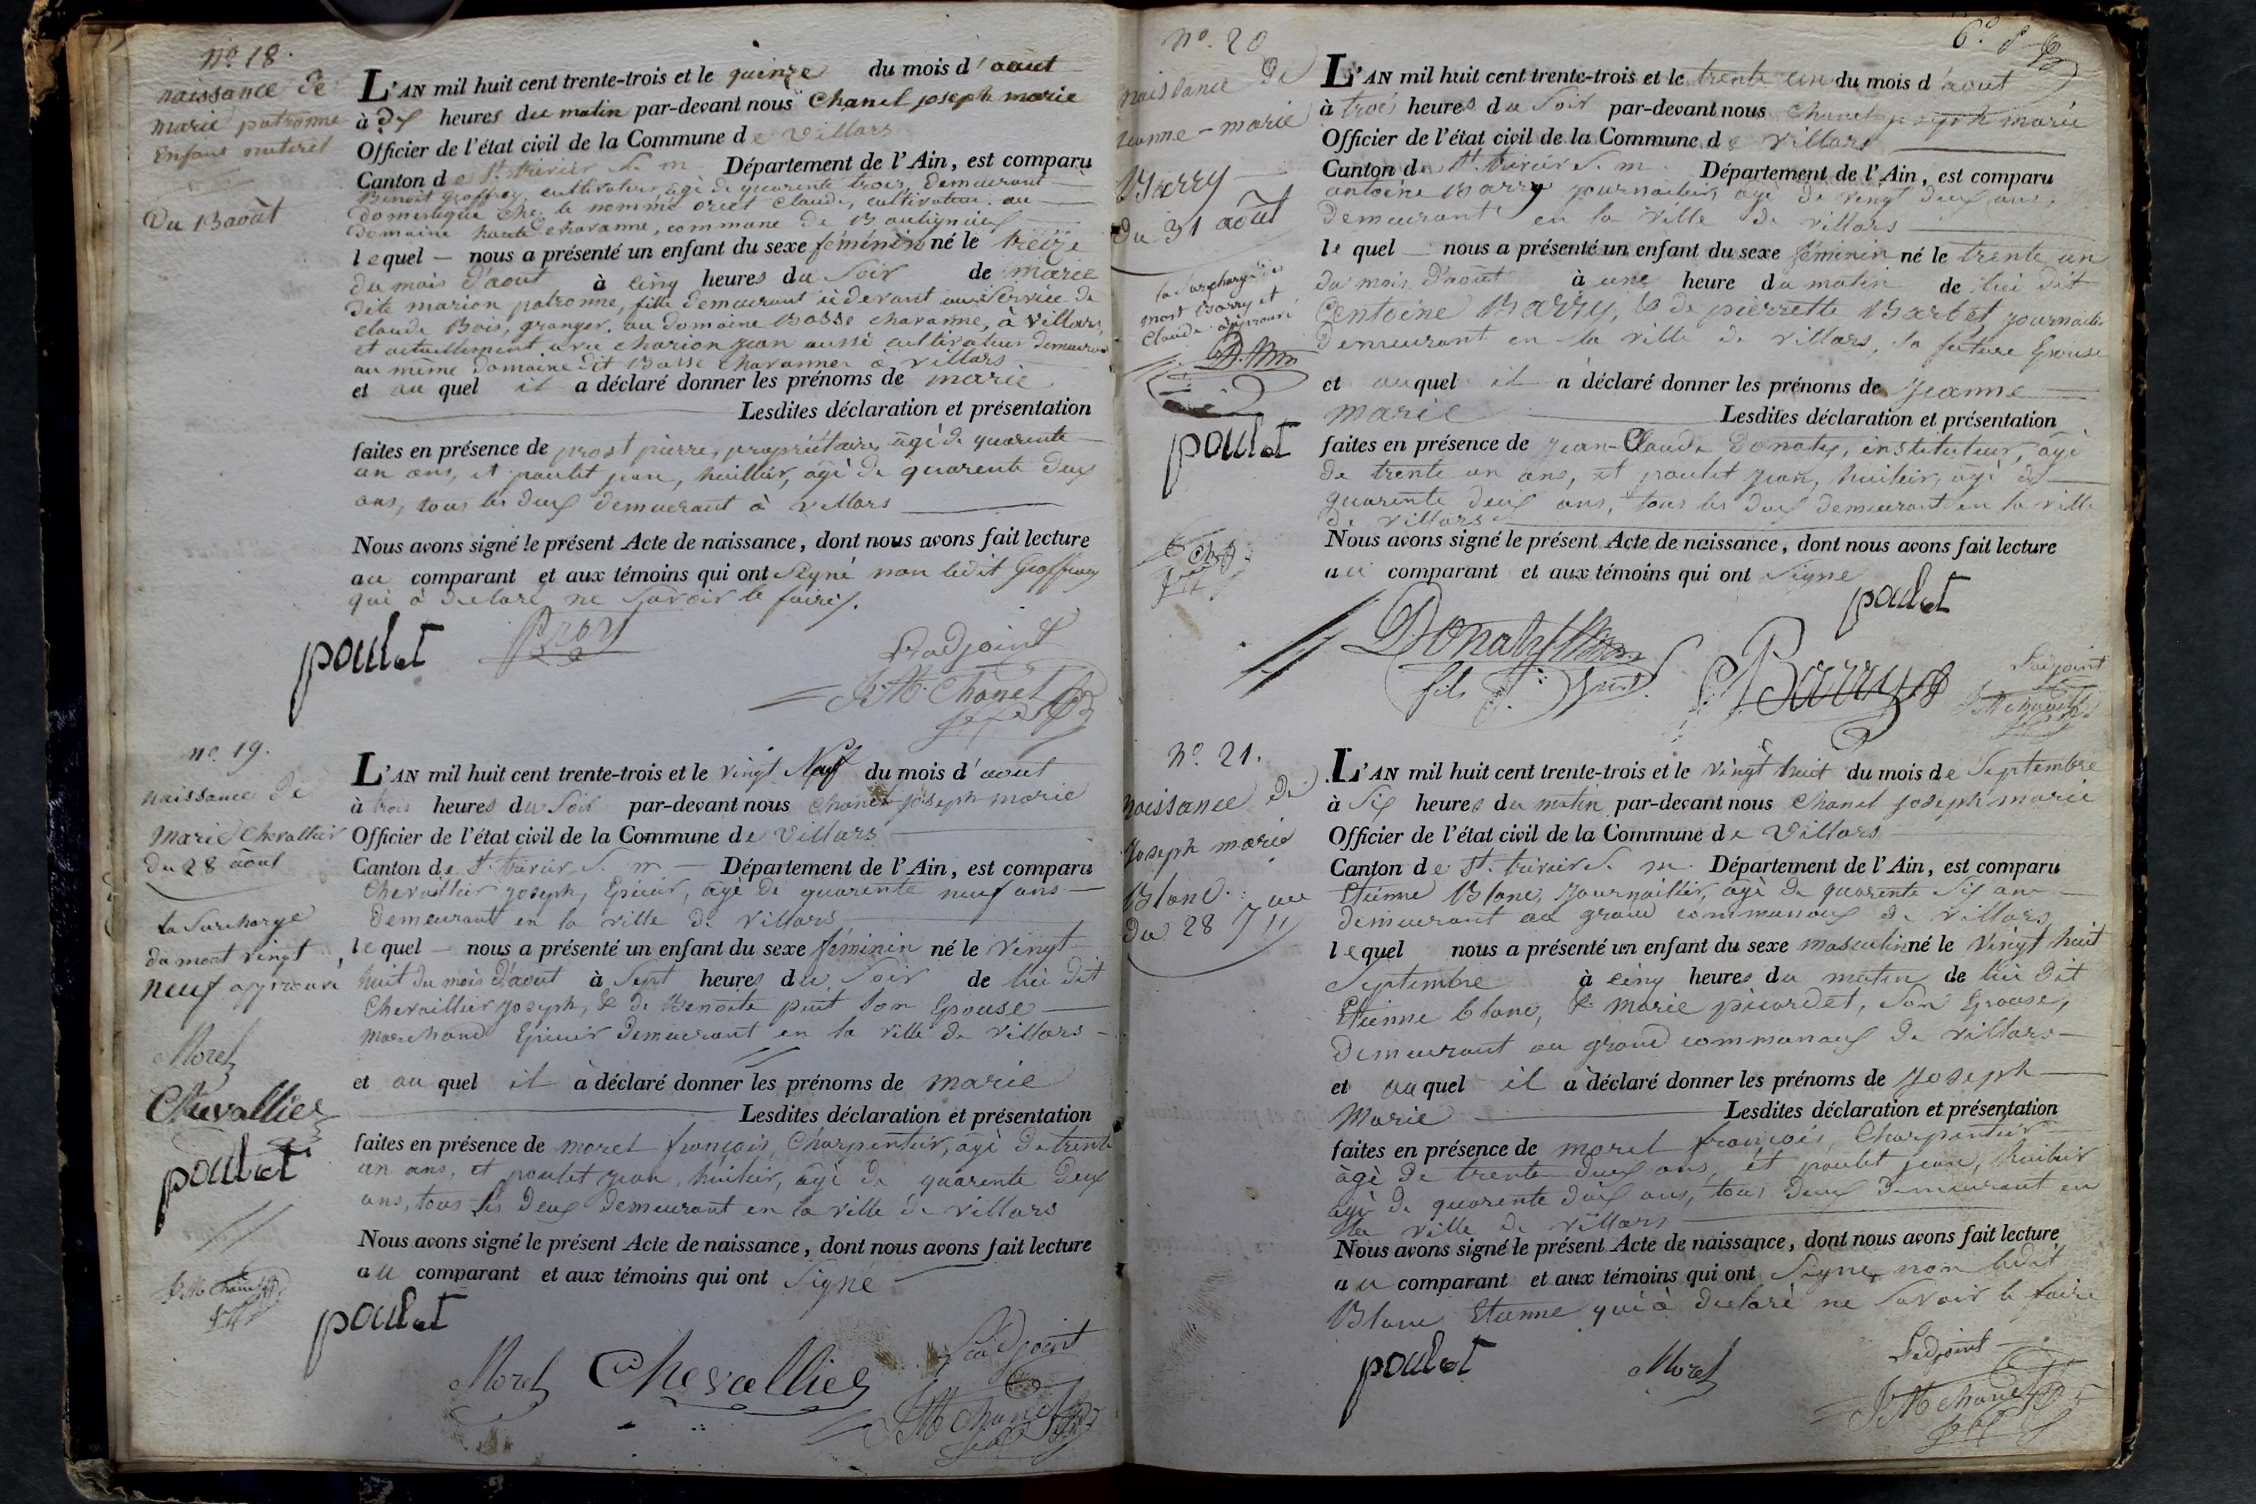 no. 18.
naissance de
marie patronne
Enfant naturel
Du 13 août
L'AN mil huit cent trente-trois et le quinze du mois d'août
à dix heures du matin par-devant nous Chanel joseph marie
Officier de l'état civil de la Commune de Villars
Canton de St. trivier S. m Département de l'Ain, est comparu
Benoit Geoffray, cultivateur, âgé de quarente trois, demeurant
domestique chez le nommé Claude, cultivateur au
domaine haute charanne, commune de
lequel nous a présenté un enfant du sexe féminin né le treize
du mois d'aout à cinq heures du Soir de marie
dite marion patronne, fille demeurant ci devant au Service de
claude Bois, granger au domaine Basse charanne, à Villars,
et actuellement avec charion jean aussi cultivateur demeurant
au même domaine dit Basse charanne à villars
et au quel il a déclaré donner les prénoms de marie
Lesdites déclaration et présentation
faites en présence de prost pierre, propriétaire, âgé de quarente
un ans, et poulet jean, huillier, âgé de quarente deux
ans, tous les deux demeurant à villars
Nous avons signé le présent Acte de naissance, dont nous avons fait lecture
au comparant et aux témoins qui ont Signé non ledit Geoffray
qui à declaré ne Savoir le faire.
poulet Prost L'adjoint
J. M. Chanel
no. 19.
naissance de
Marie Chevallier
du 28 août
la Surcharge
du mot vingt
neuf approuvé
Morel
Chevallier
poulet
J. M. Chanel
L'AN mil huit cent trente-trois et le vingt Neuf du mois d'aout
à trois heures du Soir par-devant nous Chanel joseph marie
Officier de l'état civil de la Commune de Villars
Canton de St. trivier S. m Département de l'Ain, est comparu
Chevallier joseph, Epicier, âgé de quarente neuf ans
demeurant en la ville de Villars
lequel nous a présenté un enfant du sexe féminin né le vingt
huit du mois d'aout à Sept heures du Soir de lui dit
Chevallier Joseph, & de Benoite petit Son Epouse
marchand Epicier demeurant en la ville de villars
et au quel il a déclaré donner les prénoms de marie
Lesdites déclaration et présentation
faites en présence de morel françois, Charpentier, âgé de trente
un ans, et poulet jean, huilier, âgé de quarente deux
ans, tous les deux demeurant en la ville de villars
Nous avons signé le présent Acte de naissance, dont nous avons fait lecture
au comparant et aux témoins qui ont Signé
poulet
Morel Chevallier L'adjoint
J. M. Chanel
no. 20
naissance de
Jeanne-marie
Barry
du 31 août
la Surcharge des
most Barry et
Claude approuvé
poulet
L'AN mil huit cent trente-trois et le trente un du mois d'aout
à trois heures du Soir par-devant nous Chanel joseph marie
Officier de l'état civil de la Commune de Villars
Canton de St. trivier S. m Département de l'Ain, est comparu
antoine Barry journalier, âgé de vingt deux ans,
demeurant en la ville de villars
lequel nous a présenté un enfant du sexe féminin né le trente un
du mois d'août à une heure du matin de lui dit
Antoine Barry, & de pierrette Barbet journalier
demeurant en la ville de villars, Sa future Epouse
et auquel il a déclaré donner les prénoms de Jeanne
marie Lesdites déclaration et présentation
faites en présence de Jean-Claude Donaty, instituteur, âgé
de trente un ans, et poulet jean, huilier, âgé de
quarente deux ans, tous les deux demeurant en la ville
de villars
Nous avons signé le présent Acte de naissance, dont nous avons fait lecture
au comparant et aux témoins qui ont Signé
poulet
Donaty
fils Barry L'adjoint
J. M. Chanel
no. 21.
naissance de
Joseph marie
Blanc
du 28
L'AN mil huit cent trente-trois et le vingt huit du mois de Septembre
à Six heures du matin par-devant nous Chanel joseph marie
Officier de l'état civil de la Commune de Villars
Canton de St. trivier S. m. Département de l'Ain, est comparu
Etienne Blanc, Journaillier, âgé de quarente Six ans
demeurant au grand communaux de villars
lequel nous a présenté un enfant du sexe masculin né le vingt huit
Septembre à cinq heures du matin de lui dit
Etienne blanc, & marie picardet, Son Epouse,
demeurant au grand communaux de villars
et auquel il a déclaré donner les prénoms de Joseph
Marie Lesdites déclaration et présentation
faites en présence de morel françois, Charpentier
âgé de trente deux ans, et poulet jean, huilier
âgé de quarente deux ans, tous deux demeurant en
la ville de villars
Nous avons signé le présent Acte de naissance, dont nous avons fait lecture
au comparant et aux témoins qui ont Signé, non ledit
Blanc Etienne qui à declaré ne Savoir le faire
poulet Morel L'adjoint
J. M. Chanel